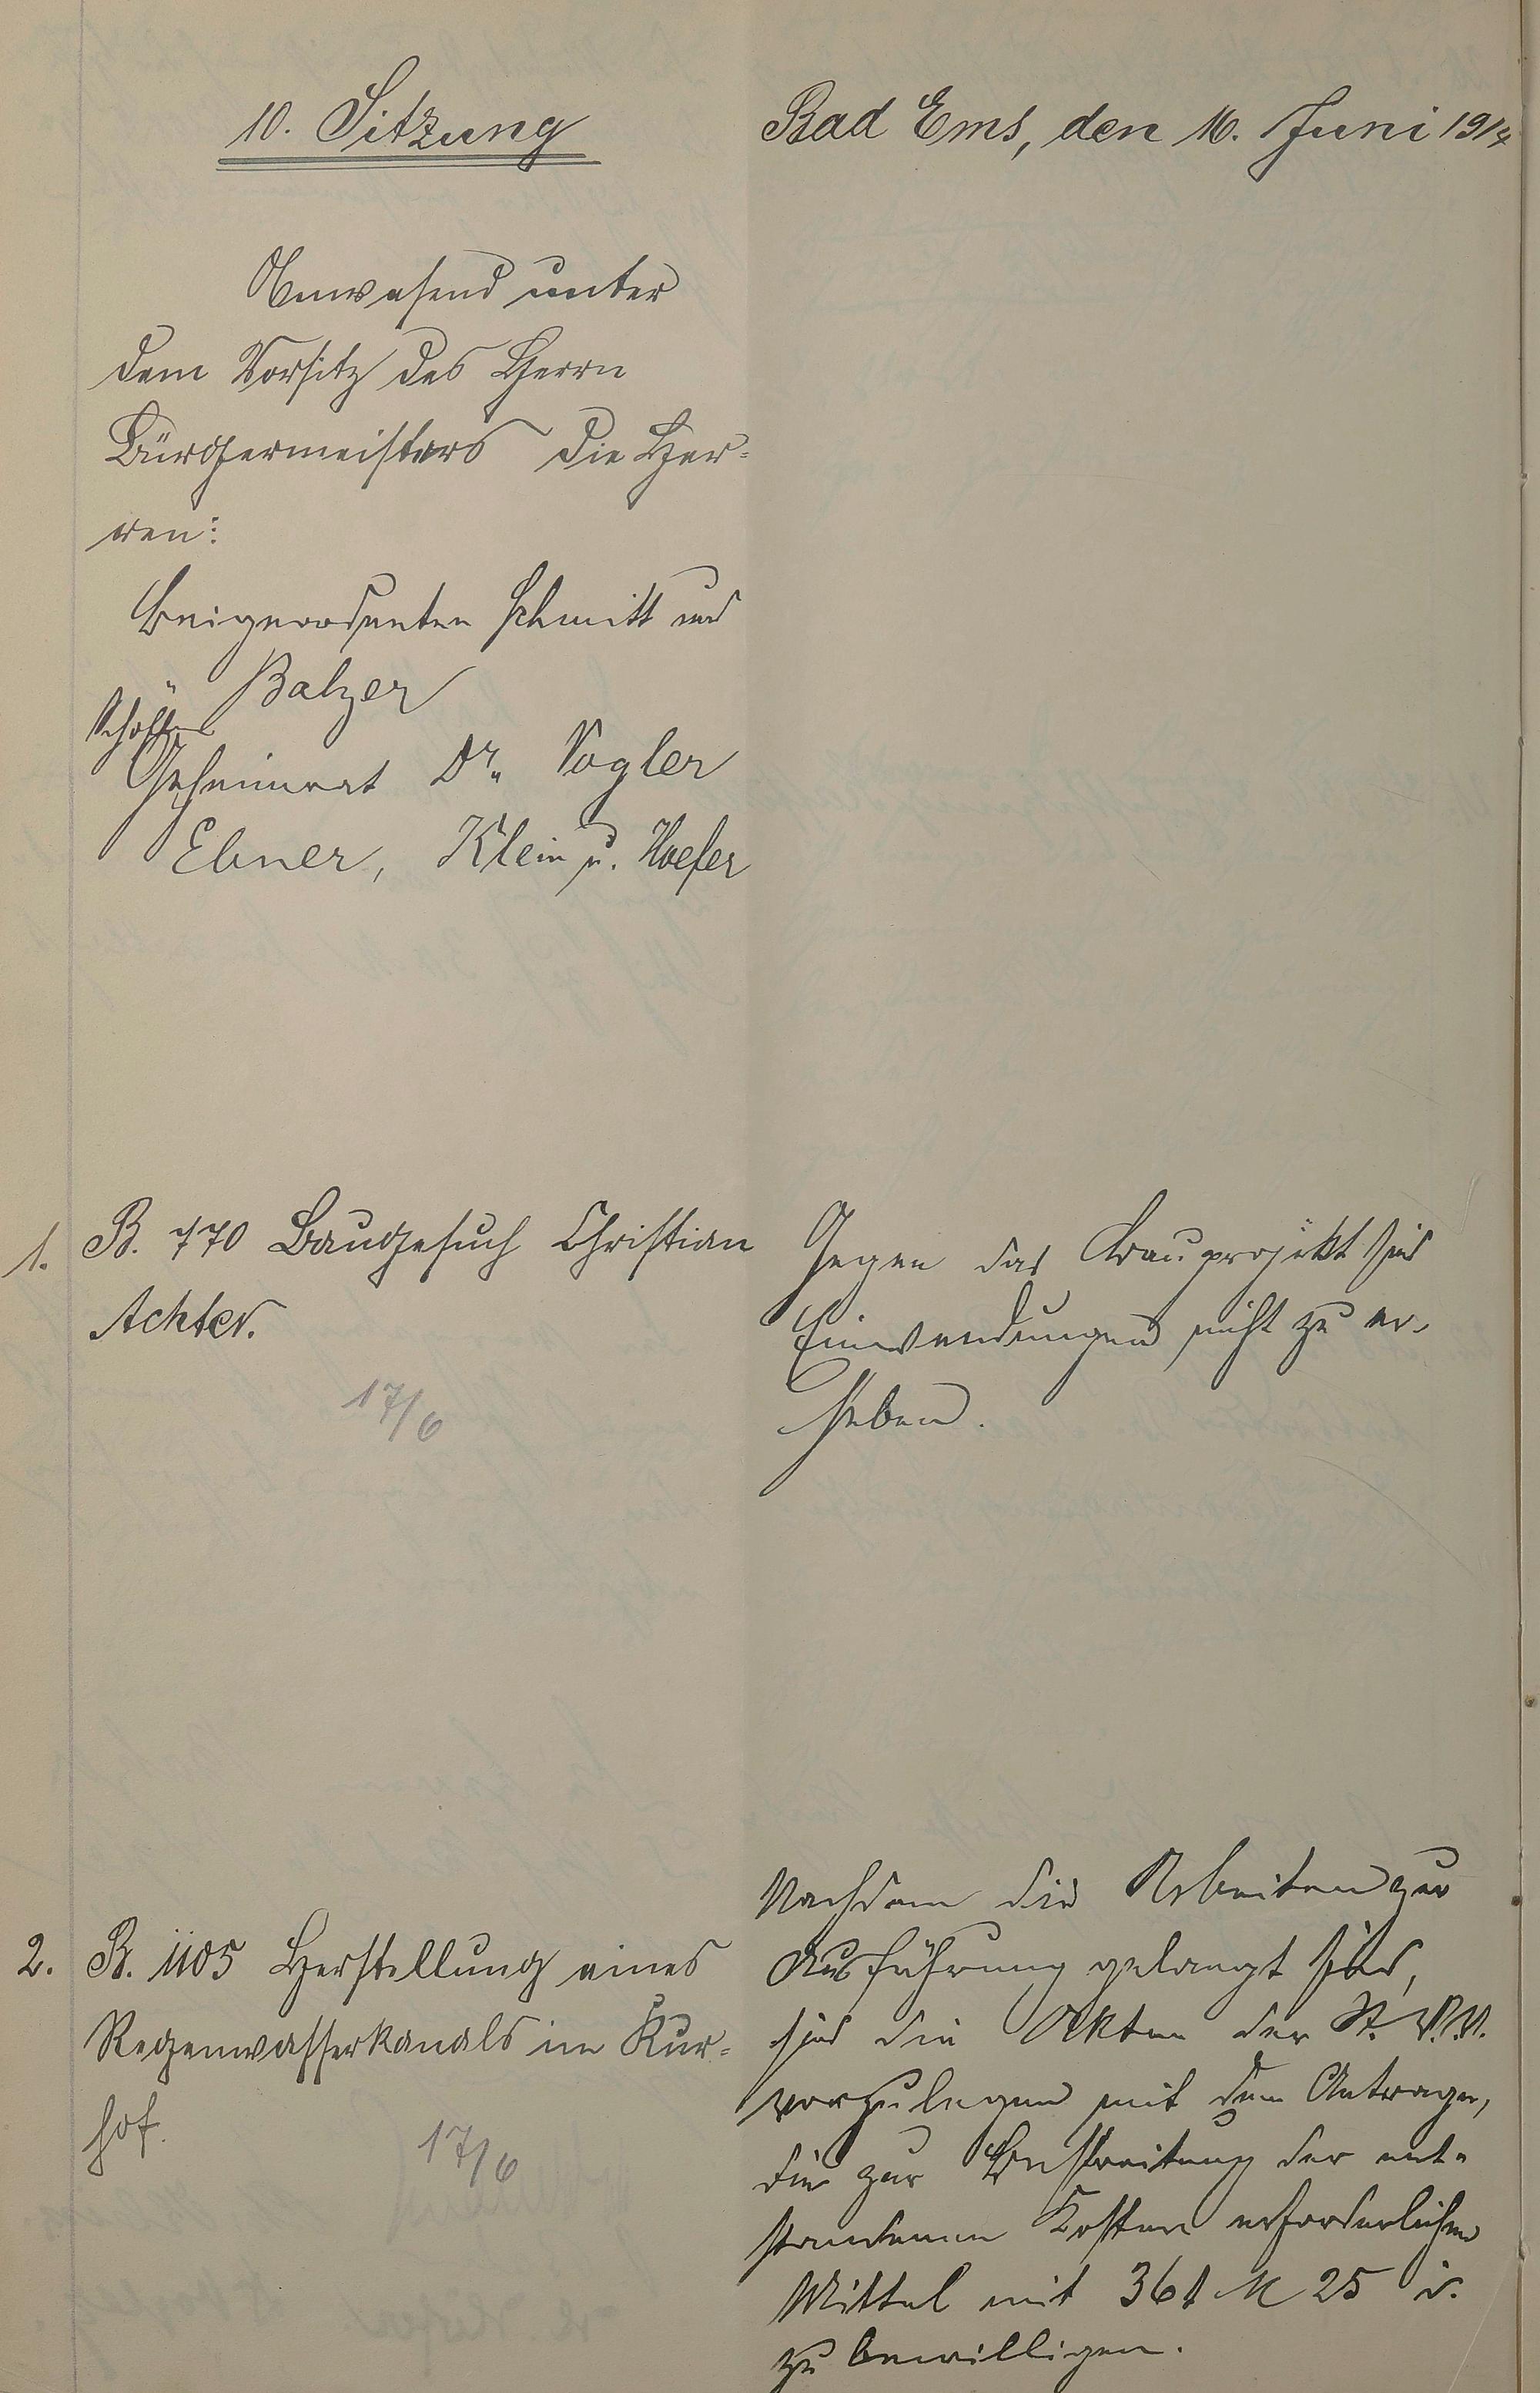 10. Sitzung
Bad Ems, den 16. Juni 1914
Anwesend unter
dem Vorsitz des Herrn
Bürgermeisters die Her=
ren:
Beigeordneten Schmitt und
" Balzer
Schöffen
Geheimrat Dr. Vogler
Ebner, Klein u. Hoefer
1. B. 770 Baugesuch Christian
Achter.
17/6
Gegen das Bauprojekt sind
Einwendungen nicht zu er-
heben.
2. B. 1105 Herstellung eines
Regenwasserkanals im Kur=
hof.
17/6
Nachdem die Arbeiten zur
Ausführung gelangt sind,
sind die Akten der St. V.V.
vorzulegen mit dem Antrage,
die zur Bestreitung der ent-
standenen Kosten erforderlichen
Mittel mit 361 M 25
zu bewilligen.